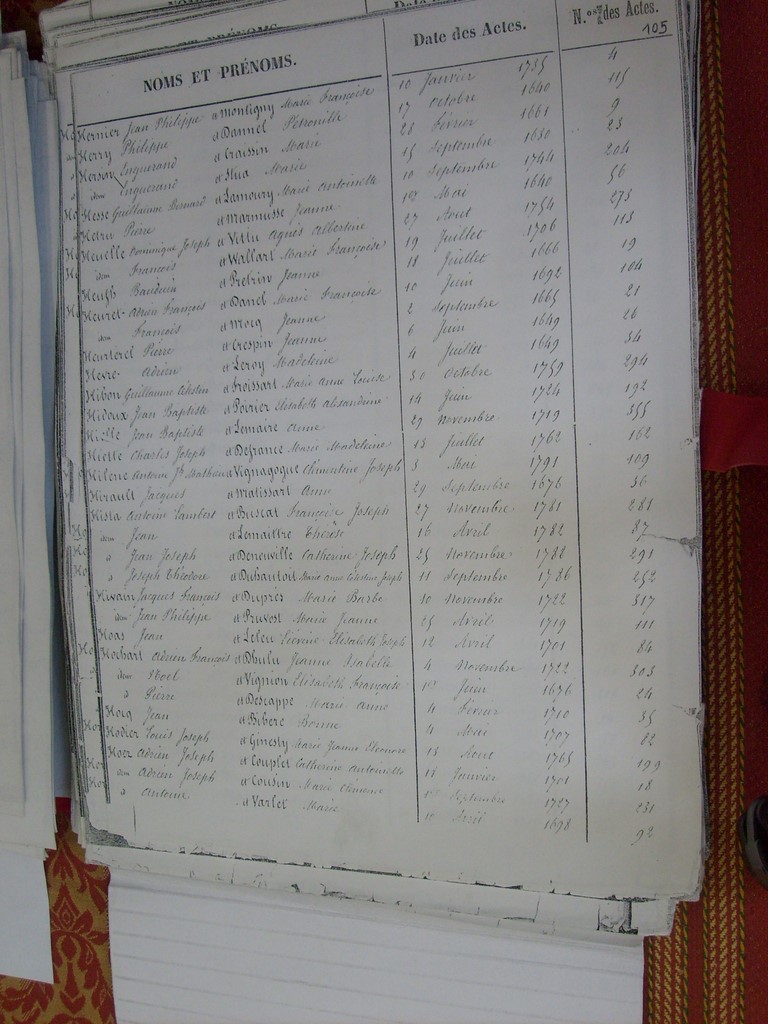 NOMS ET PRÉNOMS. Date des Actes. N.os des Actes.
105
Hernier Jean Philippe et Montigny Marie Françoise 10 Janvier 1735 4
Herry Philippe et Dannel Petronille 17 Octobre 1640 115
Herson Enguerand et Craissin Marie 28 Février 1661 9
idem Enguerand et Marie 15 Septembre 1680 23
Hesse Guillaume Bernard et Lamoury Marie Antoinette 10 Septembre 1744 204
Hetru Pierre et Marmusse Jeanne 1er Mai 1640 56
Heuelle Dominique Joseph et Agnès Albertine 27 Aout 1754 273
idem François et Wallart Marie Françoise 19 Juillet 1706 113
Heugh Baudouin et Jeanne 18 Juillet 1666 19
Heuret Adrien François et Danel Marie Françoise 10 Juin 1692 104
idem François et Mocq Jeanne 2 Septembre 1665 21
Pierre et Crespin Jeanne 6 Juin 1649 26
Hevre Adrien et Leroy Madeleine 4 Juillet 1649 34
Hibon Guillaume Célestin et Froissart Marie Anne Louise 30 Octobre 1759 294
Hidoux Jean Baptiste et Poirier Elisabeth Alexandrine 14 Juin 1724 192
Hielle Jean Baptiste et Lemaire Anne 29 Novembre 1719 355
Hielle Charles Joseph et Defrance Marie Madeleine 13 Juillet 1762 162
Hilene Antoine Jh Mathieu et Vignagogue Clementine Joseph 3 Mai 1791 109
Hirault Jacques et Matissart Anne 29 Septembre 1676 36
Hista Antoine Lambert et Buscat Françoise Joseph 27 Novembre 1781 281
idem Jean et Lemaittre Thérèse 16 Avril 1782 87
" Jean Joseph et Deneuville Catherine Joseph 25 Novembre 1788 291
" Joseph Théodore et Duhautoit Marie Anne Célestine Joseph 11 Septembre 1786 252
Hivain Jacques François et Duprès Marie Barbe 10 Novembre 1722 317
idem Jean Philippe et Pruvost Marie Jeanne 25 Avril 1719 111
Hoas Jean et Leleu Lievine Elisabeth Joseph 12 Avril 1701 84
Hochart Adrien François et Dhulu Jeanne Isabelle 4 Novembre 1722 303
idem Noel et Vignion Elisabeth Françoise 1er Juin 1676 24
" Pierre et Descappe Marie Anne 4 Février 1710 35
Hocq Jean et Bibere Bonne 4 Mai 1707 82
Hodier Louis Joseph et Ginesty Marie Jeanne Eleonore 13 Aout 1765 199
Hoez Adrien Joseph et Couplet Catherine Antoinette 18 Janvier 1701 18
idem Adrien Joseph et Cousin Marie 1er Septembre 1727 231
" Antoine et Varlet Marie 10 Avril 1698 92